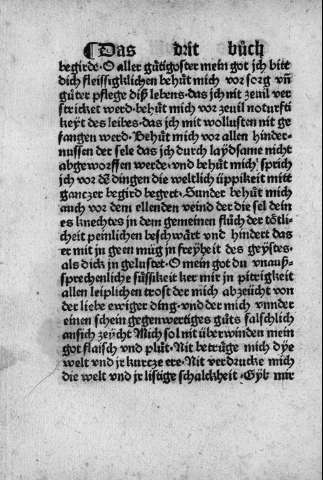 ¶ Das drit bůch
begirde · O aller gůtigoster mein got jch bitt
dich fleissigklichen behůt mich vor sorg vñ
gůter pflege diß lebens · das jch mit zeuil ver
stricket werd · behůt mich vor zeuil noturfti
keyt des leibes · das jch mit wollusten nit ge
fangen werd · Behůt mich vor allen hinder-
nussen der sele das jch durch laydsame nicht
abgeworffen werde · vnd behůt mich sprich
jch vor dē dingen die weltlich üppikeit mitt
gantzer begird begert · Sunder behůt mich
auch vor dem ellenden veind der die sel dein
es knechtes jn dem gemeinen flůch der tötli-
cheit peinlichen beschwärt vnd hindert das
er mit ju geen müg jn freyheit des geystes ·
als dick jn gelustet · O mein got du vnauß-
sprechenliche süssikeit ker mir jn pitrigkeit
allen leiplichen trost der mich abzeücht von
der liebe ewiger ding · vnd der mich vnnder
einen schein gegenwertiges gůts falschlich
ansich zeycht Mich sol nit überwinden mein
got flaisch vnd plůt · Nit betrüge mich dye
welt vnd jr kurcze ere · Nit verdrucke mich
die welt vnd jr listige schalckheit · Gyb mir